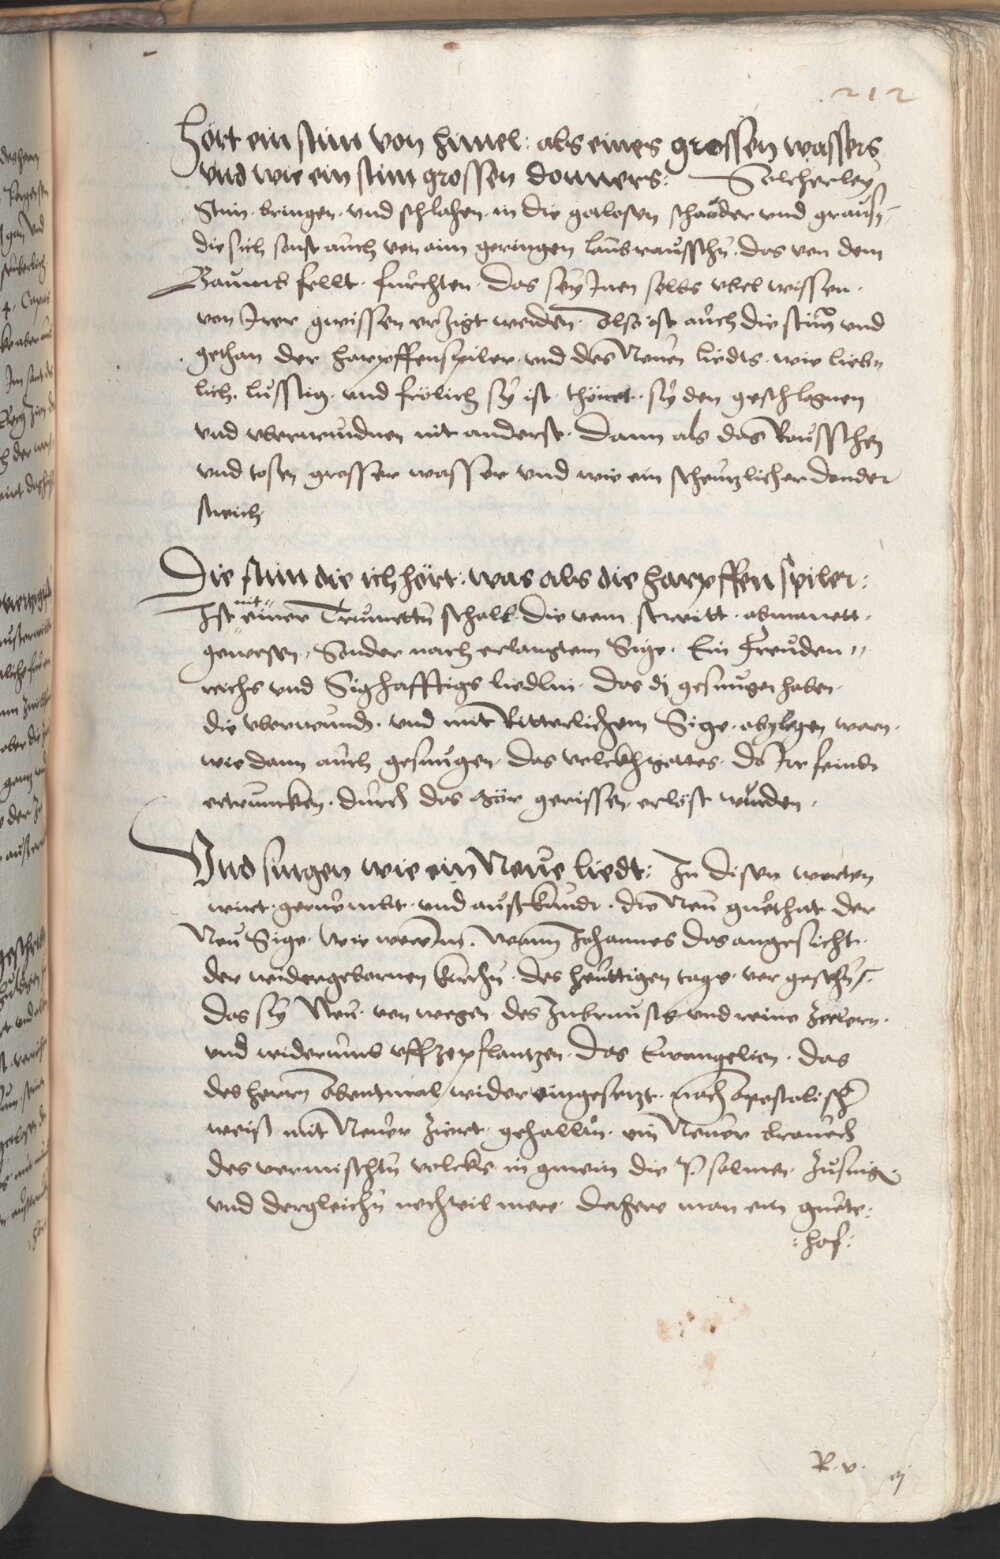 212
Hört ein stim von himel: als eines grossen wassers
vnd wie ein stim grossen donners: Solcherley
Stim bringen vnd schlahen in die gotlosen schauder vnd
die sich sonst auch von aim geringen laubrausschn das von dem
Baumb fellt furchten das sey Inen selbs vbel wissen
von Irer gwissen werden. Also ist auch die stim vnd
gethan der harpffenspiler vnd des Neuen liedts wie lieb
lich lusstig vnd frölich sy ist thönet sy den geschlagnen
vnd vberwundnen nit anderst dann als das Rausschen
vnd tosen grosser wasser vnd wie ein scheutzlicher donder
streich
Die stim die ich hört: was als die harpffen spiler:
Ist nit einer Trumettn schall die vom streitt abmanett
gewesen Sonder nach erlangtem Sige. Ein Freuden
reichs vnd Sighafftigs liedlin das dj gesungen haben
die vberwundn vnd mit Ritterlichem Sige obglegen waren
wie dann auch gesungen das volckh gottes do Ire feindt
ertruncken durch das Mör gerissen erlöst wurden
Vnd singen wie ein Neue liedt: In disen worten
wirt geruembt vnd außkundt die Neu guethat der
Neu Sige wie wann Johannes das angesicht
der widergebornen kirchn des heuttigen tags vor gesehn
das sy Neu von wegen des Inbrunsts vnd reine
vnd widerumb vffzepflantzen das Ewangelion das
des herrn Abentmal wider eingesetzt nach Apostolischer
weiß mit Neuer Zierrt gehalten ein Neuer brauch
des vermischtn volcks in gmein die Psalmen Zusingen
vnd dergleichn noch vil mere dahere man ein guete
: hof:
R. v.